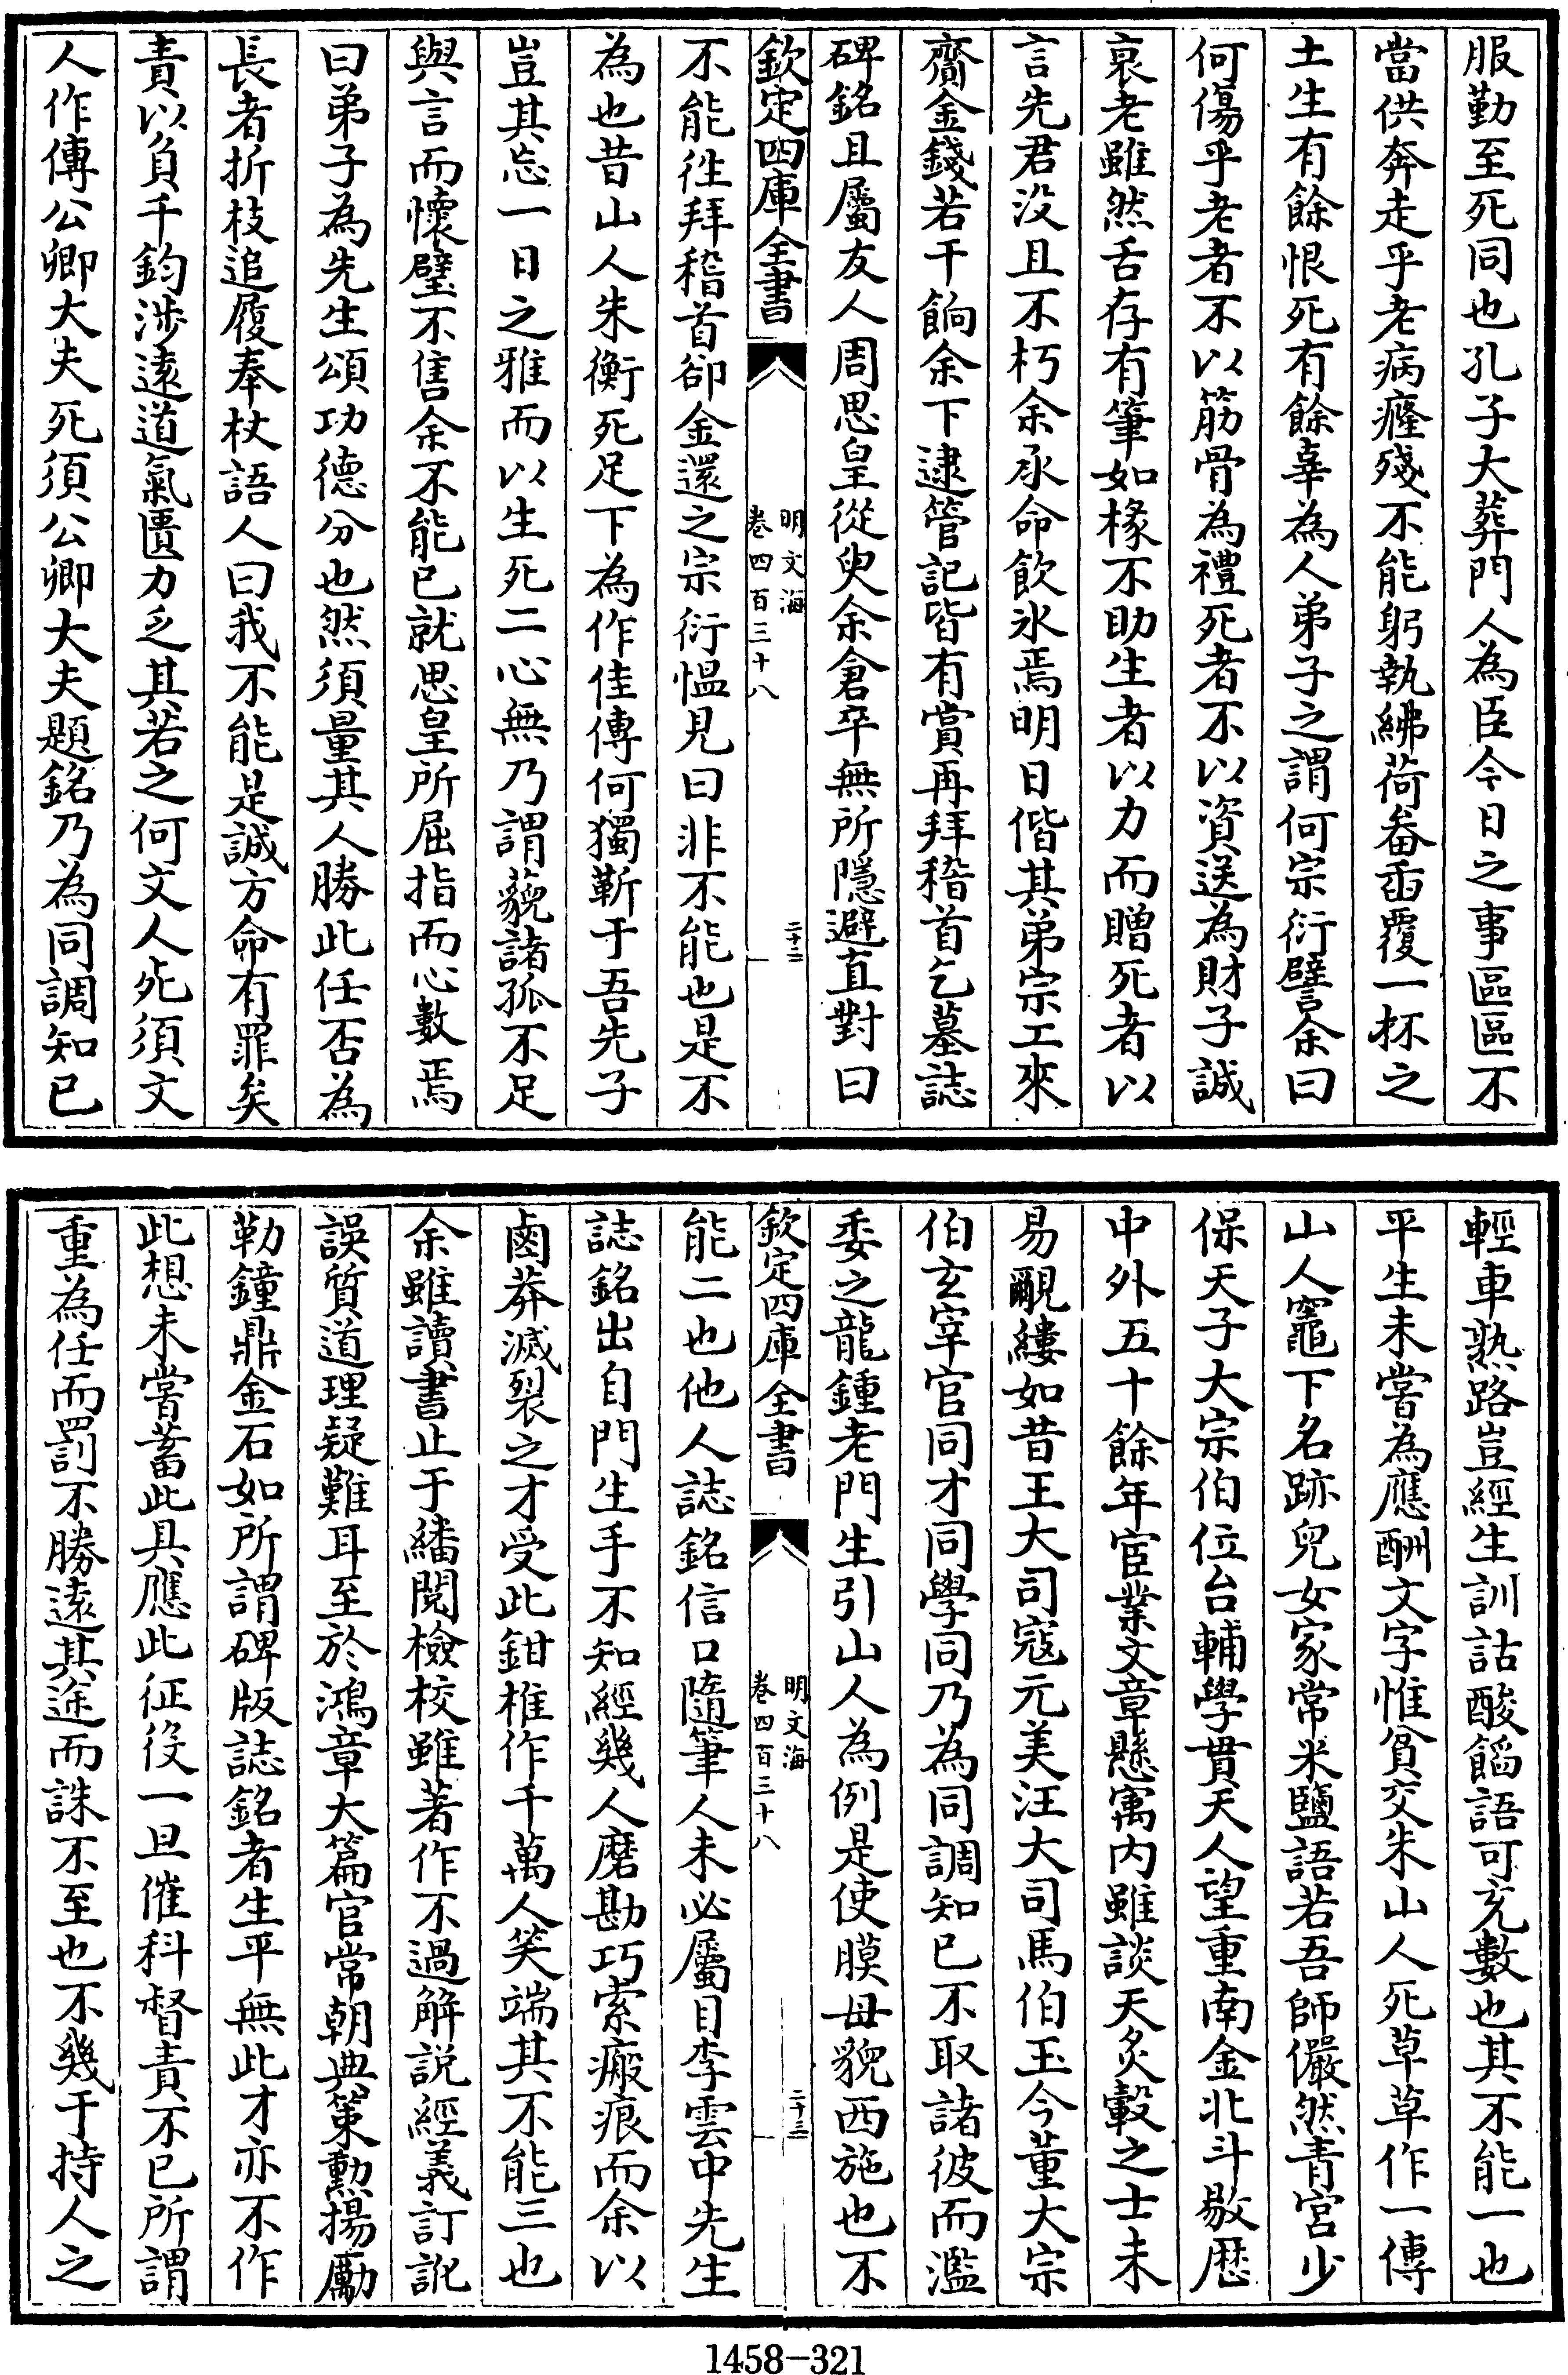 服勤至死同也孔子大葬門人為臣今日之事區區不
當供奔走乎老病癃殘不能躬執紼荷畚臿覆一抔之
土生有餘恨死有餘辜為人弟子之謂何宗衍譬余曰
何傷乎老者不以筋骨為禮死者不以資送為財子誠
哀老雖然舌存有筆如椽不助生者以力而贈死者以
言先君没且不朽余承命飲氷焉明日偕其弟宗工來
齎金錢若干餉余下逮管記皆有賞再拜稽首乞墓誌
碑銘且屬友人周思皇從臾余倉卒無所隱避直對曰
欽定四庫全書
明文海
卷四百三十八
二十三
不能徃拜稽首卻金還之宗衍愠見曰非不能也是不
為也昔山人朱衡死足下為作佳傳何獨靳于吾先子
豈其忘一日之雅而以生死二心無乃謂藐諸孤不足
與言而懷璧不售余不能已就思皇所屈指而心數焉
曰弟子為先生頌功德分也然須量其人勝此任否為
長者折枝追履奉杖語人曰我不能是誠方命有罪矣
責以負千鈞涉遠道氣匱力乏其若之何文人死須文
人作傳公卿大夫死須公卿大夫題銘乃為同調知已
輕車熟路豈經生訓詁酸餡語可充數也其不能一也
平生未嘗為應酬文字惟貧交朱山人死草草作一傳
山人竈下名跡兒女家常米鹽語若吾師儼然青宮少
保天子大宗伯位台輔學貫天人望重南金北斗敭歴
中外五十餘年宦業文章懸寓内雖談天炙轂之士未
易覼縷如昔王大司寇元美汪大司馬伯玉今董大宗
伯玄宰官同才同學同乃為同調知已不取諸彼而濫
委之龍鍾老門生引山人為例是使膜母貌西施也不
欽定四庫全書
明文海
卷四百三十八
二十三
能二也他人誌銘信口隨筆人未必屬目李雲中先生
誌銘出自門生手不知經幾人磨勘巧索瘢痕而余以
鹵莽滅裂之才受此鉗椎作千萬人笑端其不能三也
余雖讀書止于繙閱檢校雖著作不過解説經義訂訛
誤質道理疑難耳至於鴻章大篇官常朝典策勲揚勵
勒鐘鼎金石如所謂碑版誌銘者生平無此才亦不作
此想未嘗蓄此具應此征役一旦催科督責不已所謂
重為任而罰不勝遠其途而誅不至也不幾于持人之
1458-321